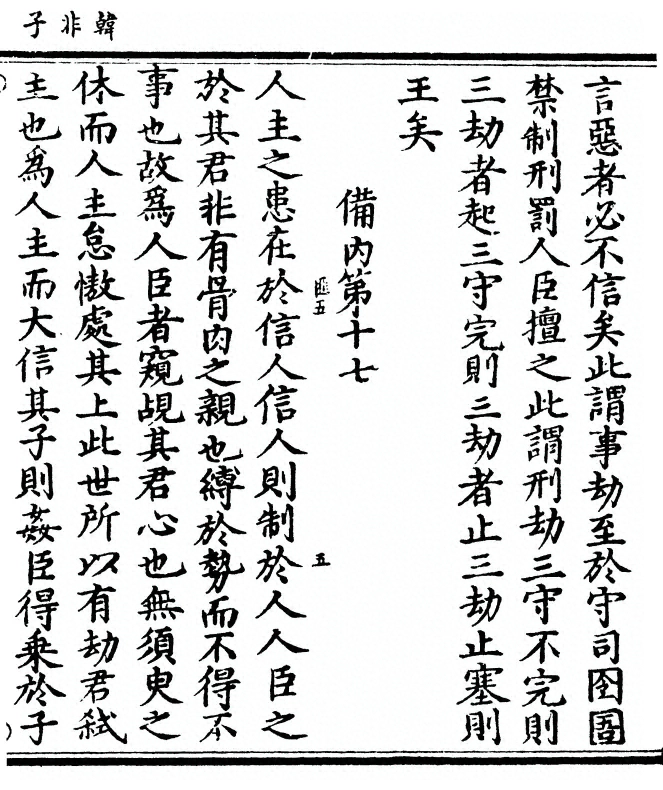 韓非子
言惡者必不信矣此謂事劫至於守司囹圄
禁制刑罰人臣擅之此謂刑劫三守不完則
三劫者起三守完則三劫者止三劫止塞則
王矣
備內第十七
匪五
五
人主之患在於信人信人則制於人人臣之
於其君非有骨肉之親也縛於勢而不得不
事也故爲人臣者窺覘其君心也無須臾之
休而人主怠慠處其上此世所以有劫君弑
主也爲人主而大信其子則姦臣得乗於子